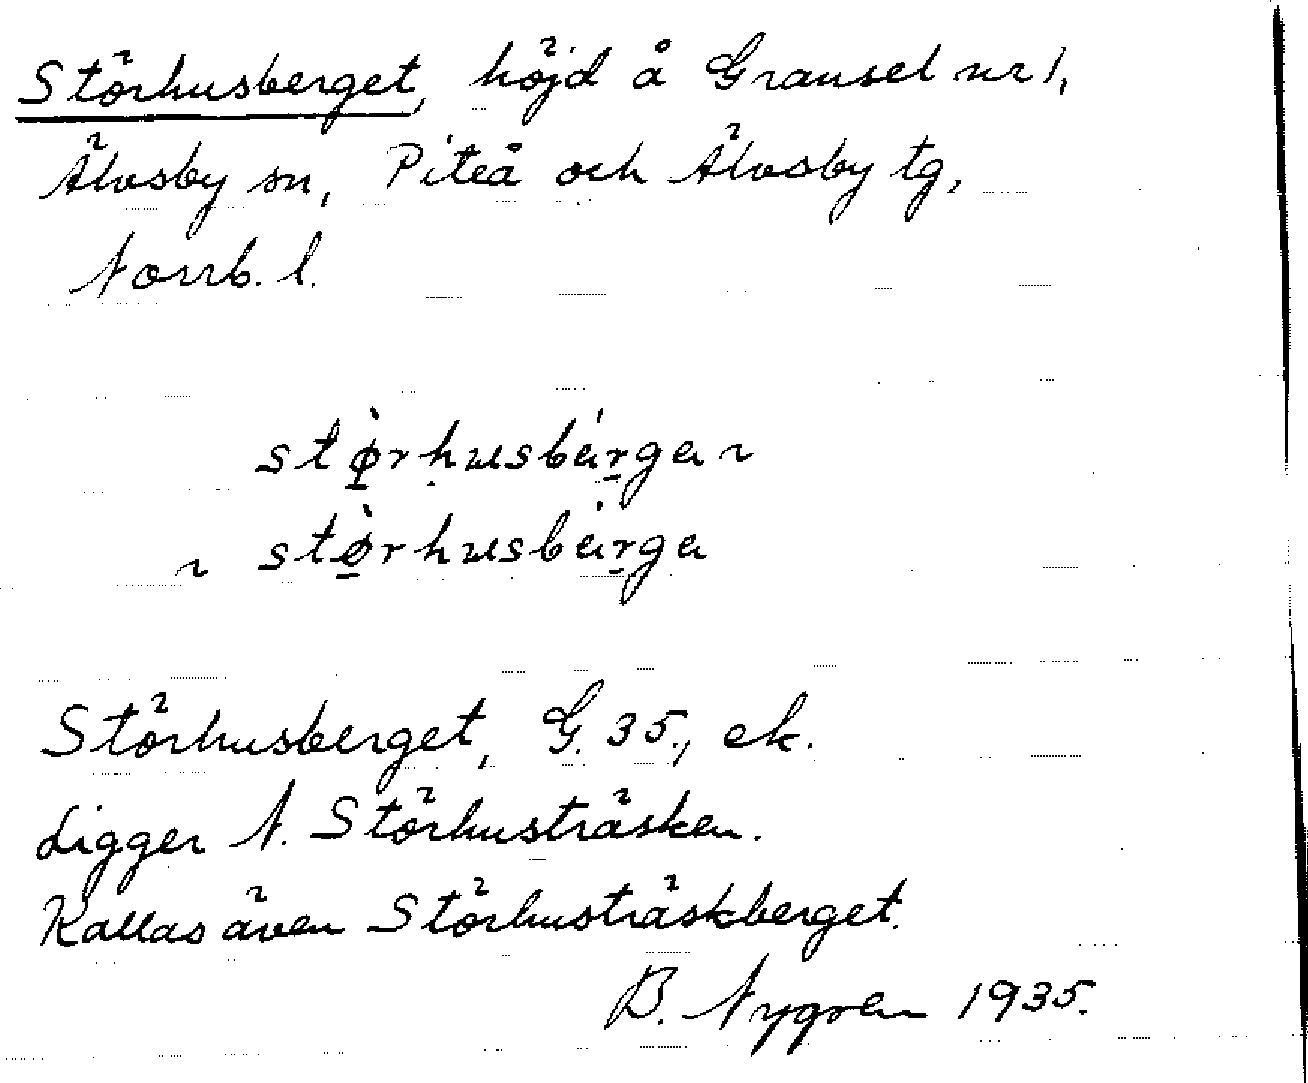 Störhusberget, höjd å Gransel nr 1,
Älvsby sn, Piteå och Älvsby tg,
Norrb. l.
stø̀rhusbárga ~
~ stø̀rhusbárga
Störhusberget, G. 35., ek.
Ligger N. Störhusträsken.
Kallas även Störhusträskberget.
B. Nygren 1935.